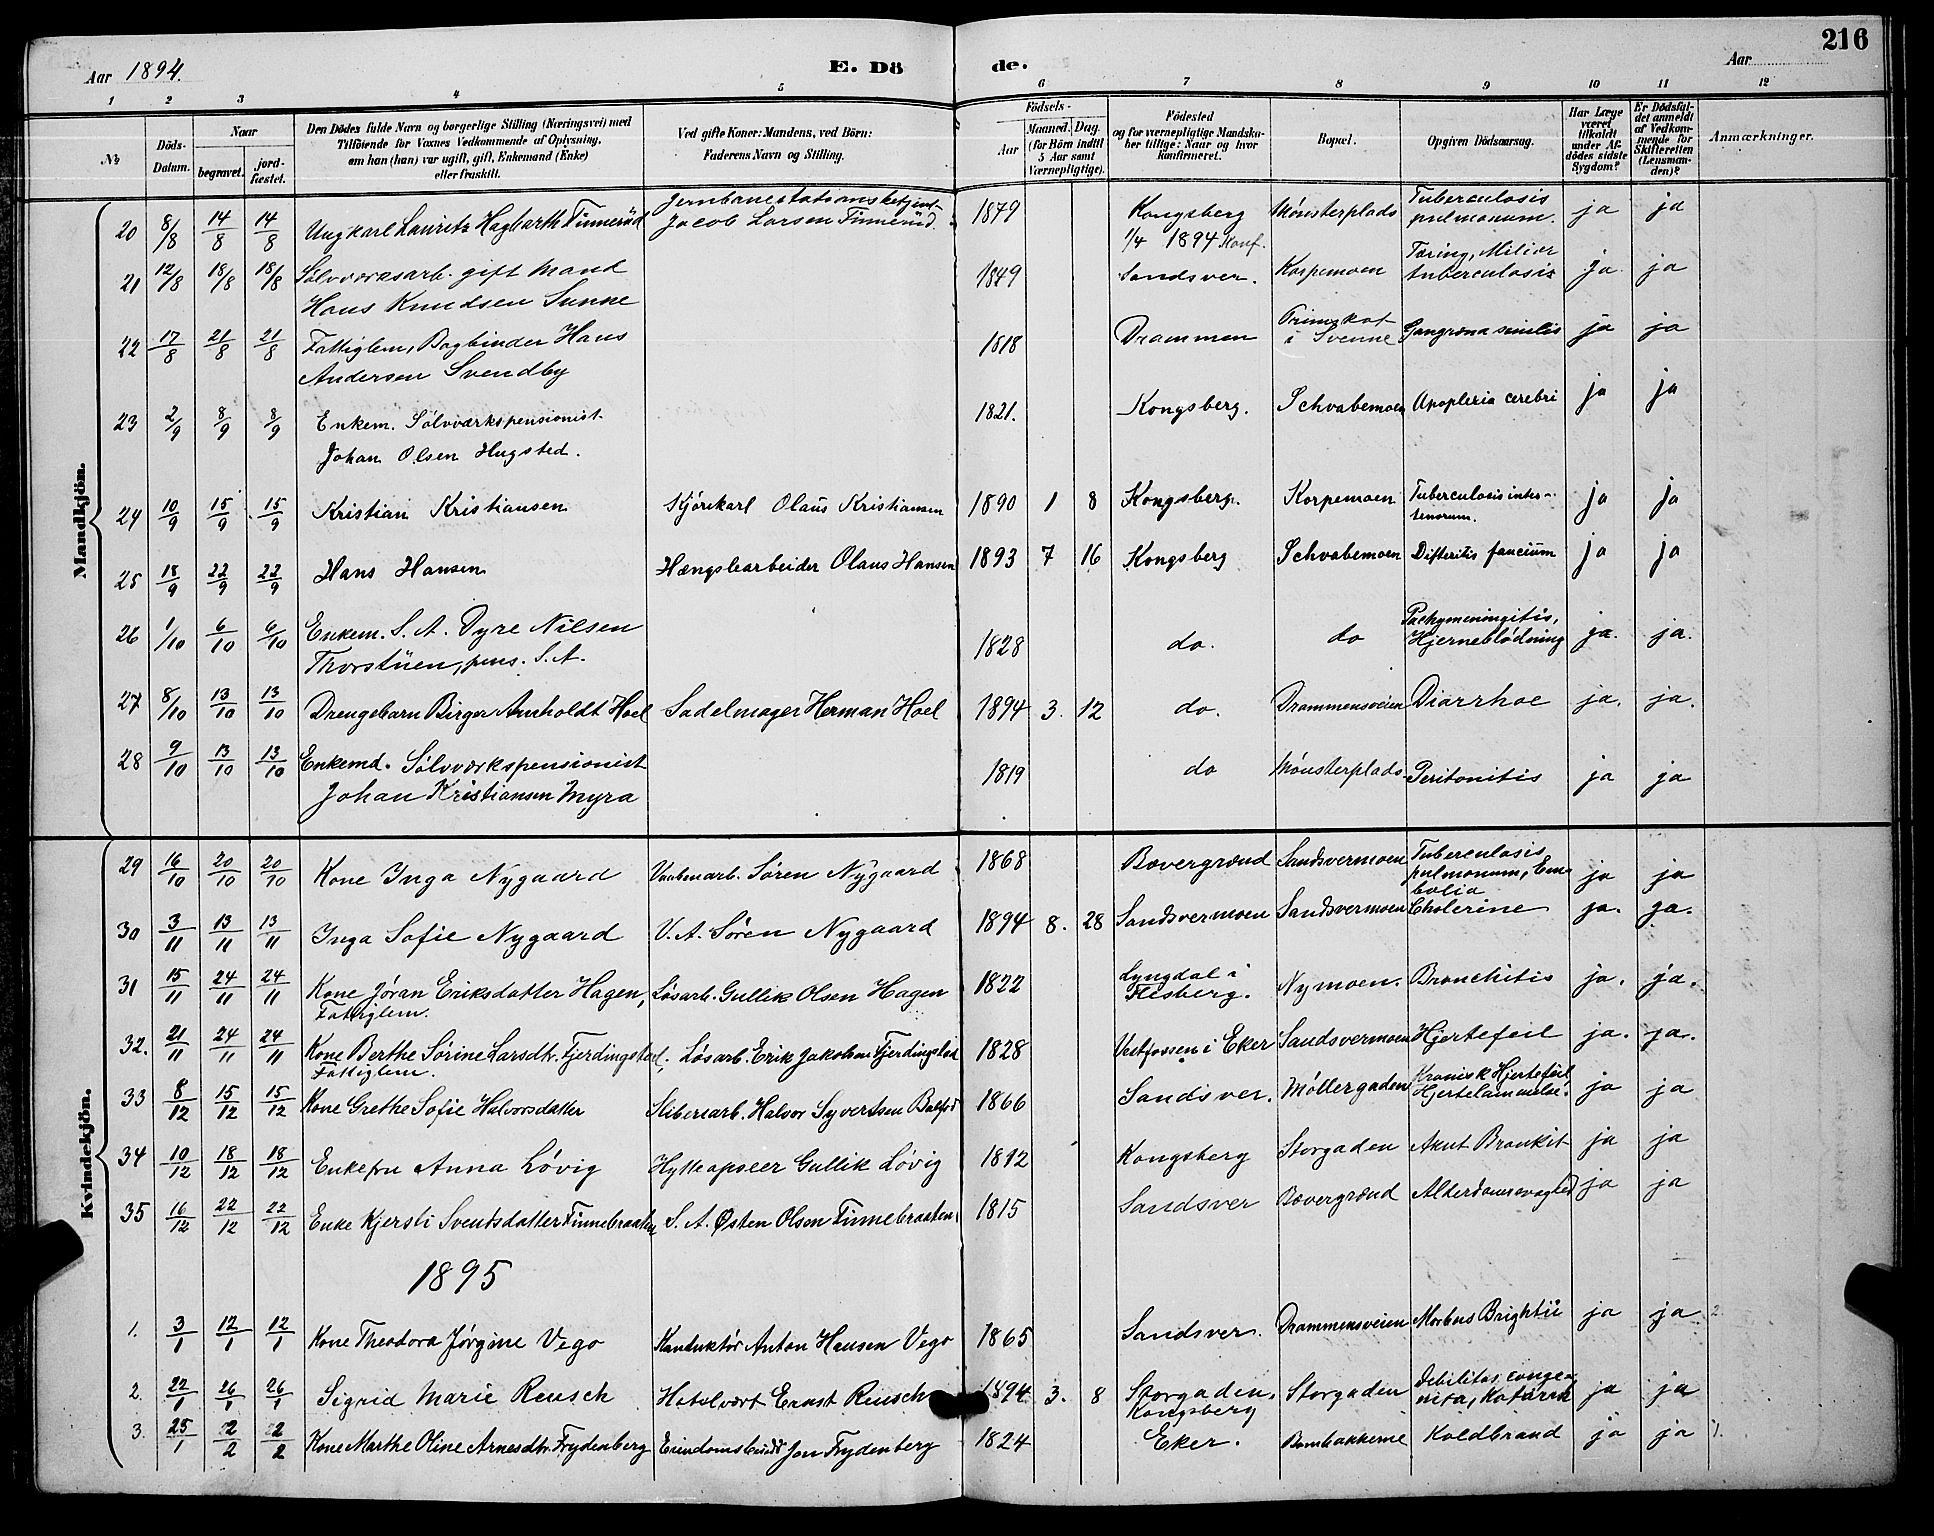 216
Aar 1894. E. Dö de. Aar
1 2 3 4 5 6 7 8 9 10 11 12
№ Döds-Datum. Naar begravet. jordfæstet. Den Dödes fulde Navn og borgerlige Stilling (Næringsvei) med Tilföiende for Voxnes Vedkommende af Oplysning, om han (hun) var ugift, gift, Enkemand (Enke) eller fraskilt. Ved gifte Koner: Mandens, ved Börn: Faderens Navn og Stilling. Födsels- Aar Maaned. Dag. (for Börn indtil 5 Aar samt Værnepligtige). Födested og for værnepligtige Mandskaber tillige: Naar og hvor konfirmeret. Bopæl. Opgiven Dödsaarsag. Har Læge været tilkaldt under Afdödes sidste Sygdom? Er Dödsfaldet anmeldt af Vedkommende for Skifteretten (Lensmanden)? Anmærkninger.
Mandkjön.
20 8/8 14/8 14/8 Ungkarl Lauritz Hagbarth Tinnerud Jernbanestationsbetjent Jacob Larsen Tinnerud. 1879 Kongsberg 1/4 1894 Konf. Mónsterplads Tuberculosis pulmonum. ja ja
21 12/8 18/8 18/8 Sølvværksarb. gift Mand Hans Knudsen Sunne 1849 Sandsver. Korpemoen Tæring, Miliær tuberculosis ja ja
22 17/8 21/8 21/8 Fattiglem, Bogbinder Hans Andersen Svendby 1818 Drammen i Svenne Gangræna senilis ja ja
23 2/9 8/9 8/9 Enkem. Sølvværkspensionist Johan Olsen Hugsted. 1821. Kongsberg. Schvabemoen Apoplexia cerebri ja ja
24 10/9 15/9 15/9 Kristian Kristiansen Kjörekarl Olaus Kristiansen 1890 1 8 Kongsberg. Korpemoen Tuberculosis ja ja
25 18/9 22/9 22/9 Hans Hansen Hængslearbeider Olaus Hansen 1893 7 16 Kongsberg Schvabemoen Difteritis faucium ja ja
26 1/10 6/10 6/10 Enkem. S. A. Dyre Nilsen Thorstuen, pens. S. A. 1828 do. do Pachymeningitis, Hjerneblödning ja. ja.
27 8/10 13/10 13/10 Drengebarn Birger Arnholdt Hoel Sadelmager Herman Hoel 1894 3. 12 do. Drammensveien Diarrhoe ja. ja.
28 9/10 13/10 13/10 Enkemd. Sölvværkspensionist Johan Kristiansen Myra 1819 do Mónsterplads Peritonitis ja ja
Kvindekjön.
29 16/10 20/10 20/10 Kone Inga Nygaard Vaabenarb. Sören Nygaard 1868 Bævergrænd Sandsvermoen Tuberculosis pulmonum, Embolia ja ja
30 3/11 13/11 13/11 Inga Sofie Nygaard V. A. Sören Nygaard 1894 8. 28 Sandsvermoen Sandsvermoen Cholerine ja. ja.
31 15/11 24/11 24/11 Kone Jöran Eriksdatter Hagen, Fattiglem. Løsarb. Gullik Olsen Hagen 1822 Lyngdal i Flesberg. Nymoen. Bronchitis ja. ja.
32. 21/11 24/11 24/11 Kone Berthe Sörine Larsdtr. Fjerdingstad, Fattiglem. Løsarb. Erik Jakobsen Fjerdingstad 1828 Vestfossen i Eker Sandsvermoen Hjertefeil ja. ja.
33 8/12 15/12 15/12 Kone Grethe Sofie Halvorsdatter Sliberiarb. Halvor Syvertsen 1866 Sandsver. Møllergaden Kronisk Hjertefeil Hjertelammelse. ja ja
34 10/12 18/12 18/12 Enkefru Anna Lövig Hytteopseer Gullik Lövig 1812 Kongsberg Storgaden Akut Bronkit ja ja
35 16/12 22/12 22/12 Enke Kjersti Svendsdatter Tinnebraaten S. A. Østen Olsen Tinnebraaten 1815 Sandsver Bævergrænd Alderdomssvaghed ja ja
1895
1. 3/1 12/1 12/1 Kone Theodora Jørgine Vego Konduktör Anton Hansen Vego 1865 Sandsver. Drammensveien Morbus Brightii ja ja 2.
2. 22/1 26/1 26/1 Sigrid Marie Reusch Hotelvært Ernst Reusch 1894 3. 8 Storgaden, Kongsberg Storgaden Debilitas congenita, Katarrh ja ja
3. 25/1 2/2 2/2 Kone Marthe Oline Arnesdtr. Frydenberg Jon Frydenberg 1824 Eker. Bombakkerne Koldbrand ja ja 1.